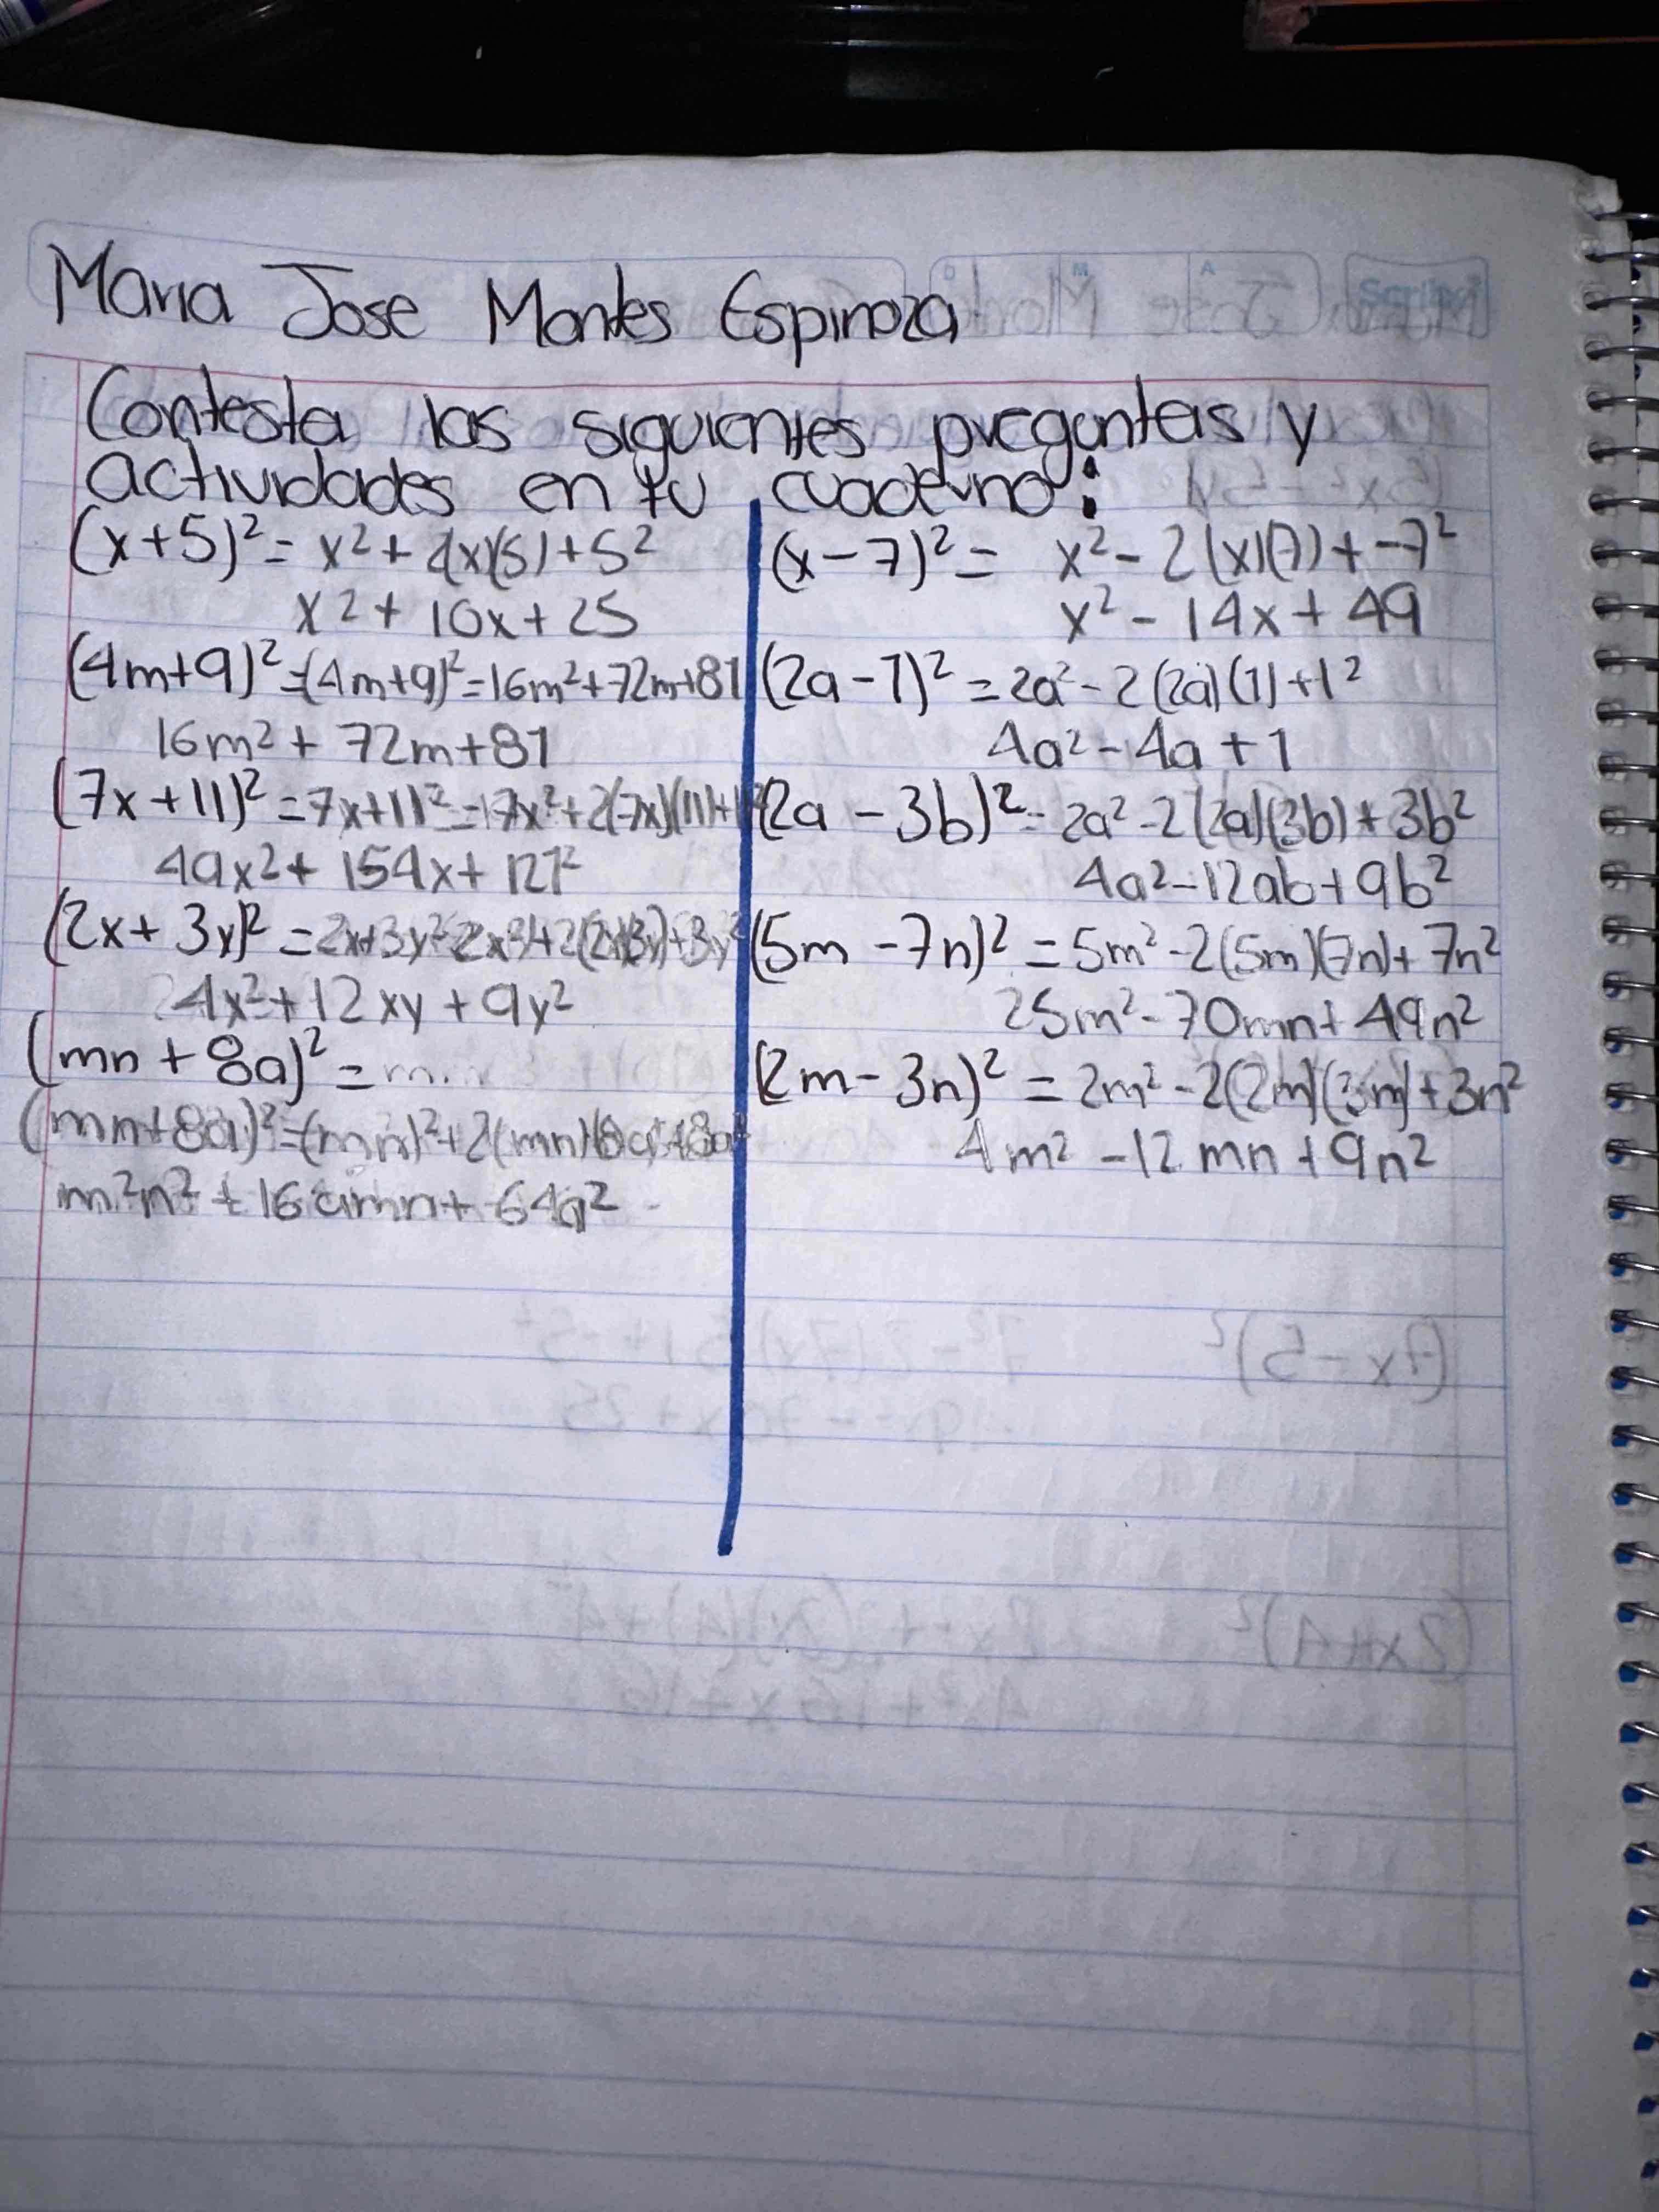 Maria Jose Montes Espinoza
Contesta las siguientes preguntas y
actividades en tu cuaderno:
(x+5)² = x²+2(x)(5)+5²
x2+10x+25
(4m+9)²=(4m+9)²=16m²+72m+81
16m²+72m+81
(7x+11)²=7x+11)²=7x²+2(7x)(11)+
49x²+154x+121²
(2x+3y)²=2x+3y²=2x²+2(2x)(3y)+3y²
4x²+12xy+9y²
(mn+8a)²=
(mn+8a)²=(mn)²+2(mn)(8a)+8a²
m²n²+16amn+64a²
(x-7)²= x²-2(x)(7)+-7²
x²-14x+49
(2a-1)²=2a²-2(2a)(1)+1²
4a²-4a+1
(2a-3b)²=2a²-2(2a)(3b)+3b²
4a²-12ab+9b²
(5m-7n)²=5m²-2(5m)(7n)+7n²
25m²-70mn+49n²
(2m-3n)²=2m²-2(2m)(3m)+3n²
4m²-12mn+9n²